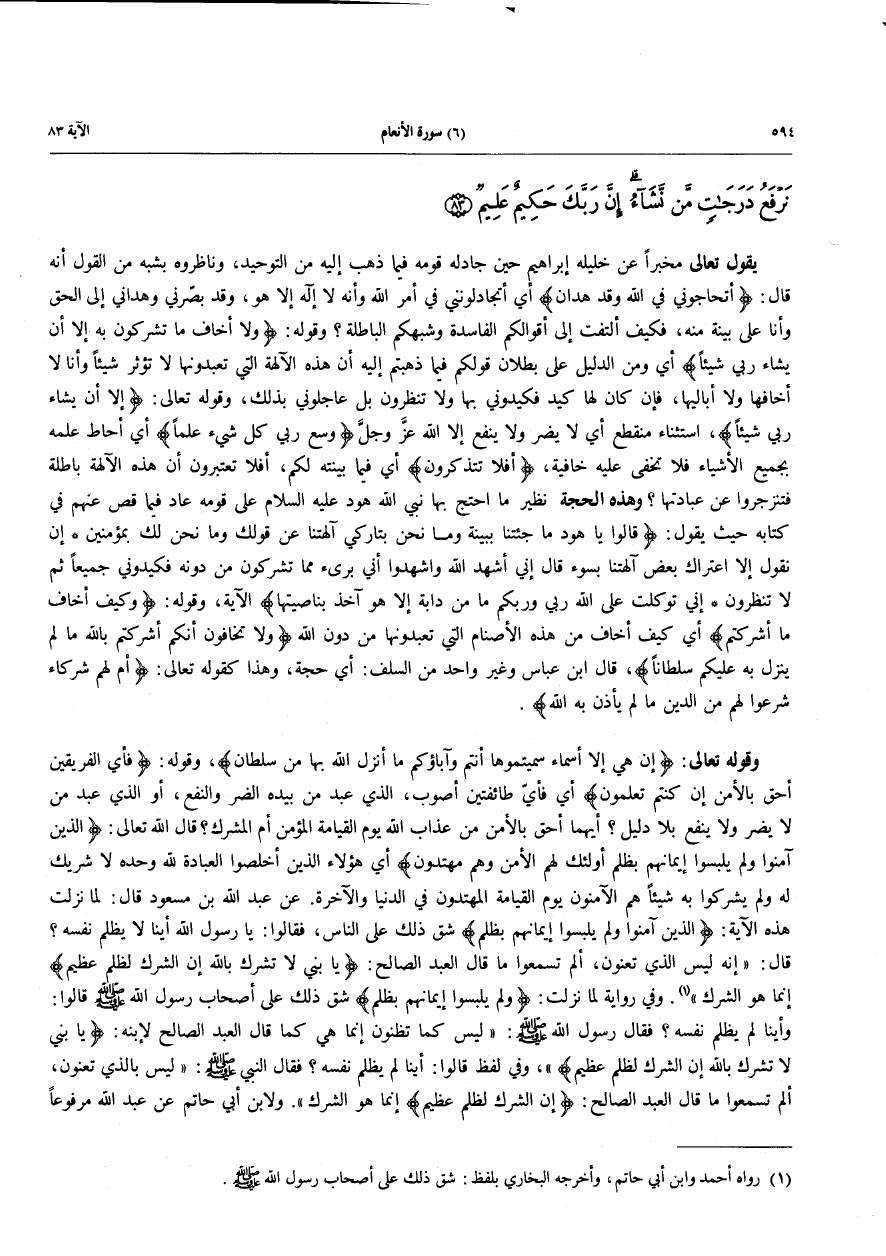 ٥٩٤ (٦) سورة الأنعام الآية ٨٣
نَرْفَعُ دَرَجَٰتٍ مَّن نَّشَآءُ ۗ إِنَّ رَبَّكَ حَكِيمٌ عَلِيمٌ ﴿٨٣﴾
يقول تعالى مخبراً عن خليله إبراهيم حين جادله قومه فيما ذهب إليه من التوحيد، وناظروه بشبه من القول أنه
قال: ﴿أتحاجوني في الله وقد هدان﴾ أي أتجادلونني في أمر الله وأنه لا إلٓه إلا هو، وقد بصّرني وهداني إلى الحق
وأنا على بينة منه، فكيف ألتفت إلى أقوالكم الفاسدة وشبهكم الباطلة؟ وقوله: ﴿ولا أخاف ما تشركون به إلا أن
يشاء ربي شيئاً﴾ أي ومن الدليل على بطلان قولكم فيما ذهبتم إليه أن هذه الآلهة التي تعبدونها لا تؤثر شيئاً وأنا لا
أخافها ولا أباليها، فإن كان لها كيد فكيدوني بها ولا تنظرون بل عاجلوني بذلك، وقوله تعالى: ﴿إلا أن يشاء
ربي شيئاً﴾، استثناء منقطع أي لا يضر ولا ينفع إلا الله عزَّ وجلَّ ﴿وسع ربي كل شيء علماً﴾ أي أحاط علمه
بجميع الأشياء فلا تخفى عليه خافية، ﴿أفلا تتذكرون﴾ أي فيما بينته لكم، أفلا تعتبرون أن هذه الآلهة باطلة
فتنزجروا عن عبادتها؟ وهذه الحجة نظير ما احتج بها نبي الله هود عليه السلام على قومه عاد فيما قص عنهم في
كتابه حيث يقول: ﴿قالوا يا هود ما جئتنا ببينة وما نحن بتاركي آلهتنا عن قولك وما نحن لك بمؤمنين * إن
نقول إلا اعتراك بعض آلهتنا بسوء قال إني أشهد الله واشهدوا أني برىء مما تشركون من دونه فكيدوني جميعاً ثم
لا تنظرون * إني توكلت على الله ربي وربكم ما من دابة إلا هو آخذ بناصيتها﴾ الآية، وقوله: ﴿وكيف أخاف
ما أشركتم﴾ أي كيف أخاف من هذه الأصنام التي تعبدونها من دون الله ﴿ولا تخافون أنكم أشركتم بالله ما لم
ينزل به عليكم سلطاناً﴾، قال ابن عباس وغير واحد من السلف: أي حجة، وهذا كقوله تعالى: ﴿أم لهم شركاء
شرعوا لهم من الدين ما لم يأذن به الله﴾.
وقوله تعالى: ﴿إن هي إلا أسماء سميتموها أنتم وآباؤكم ما أنزل الله بها من سلطان﴾، وقوله: ﴿فأي الفريقين
أحق بالأمن إن كنتم تعلمون﴾ أي فأيّ طائفتين أصوب، الذي عبد من بيده الضر والنفع، أو الذي عبد من
لا يضر ولا ينفع بلا دليل؟ أيهما أحق بالأمن من عذاب الله يوم القيامة المؤمن أم المشرك؟ قال الله تعالى: ﴿الذين
آمنوا ولم يلبسوا إيمانهم بظلم أولئك لهم الأمن وهم مهتدون﴾ أي هؤلاء الذين أخلصوا العبادة لله وحده لا شريك
له ولم يشركوا به شيئاً هم الآمنون يوم القيامة المهتدون في الدنيا والآخرة. عن عبد الله بن مسعود قال: لما نزلت
هذه الآية: ﴿الذين آمنوا ولم يلبسوا إيمانهم بظلم﴾ شق ذلك على الناس، فقالوا: يا رسول الله أينا لا يظلم نفسه؟
قال: «إنه ليس الذي تعنون، ألم تسمعوا ما قال العبد الصالح: ﴿يا بني لا تشرك بالله إن الشرك لظلم عظيم﴾
إنما هو الشرك»(١). وفي رواية لما نزلت: ﴿ولم يلبسوا إيمانهم بظلم﴾ شق ذلك على أصحاب رسول الله ﷺ قالوا:
وأينا لم يظلم نفسه؟ فقال رسول الله ﷺ: «ليس كما تظنون إنما هي كما قال العبد الصالح لإبنه: ﴿يا بني
لا تشرك بالله إن الشرك لظلم عظيم﴾»، وفي لفظ قالوا: أينا لم يظلم نفسه؟ فقال النبي ﷺ: «ليس بالذي تعنون،
ألم تسمعوا ما قال العبد الصالح: ﴿إن الشرك لظلم عظيم﴾ إنما هو الشرك». ولابن أبي حاتم عن عبد الله مرفوعاً
(١) رواه أحمد وابن أبي حاتم، وأخرجه البخاري بلفظ: شق ذلك على أصحاب رسول الله ﷺ.